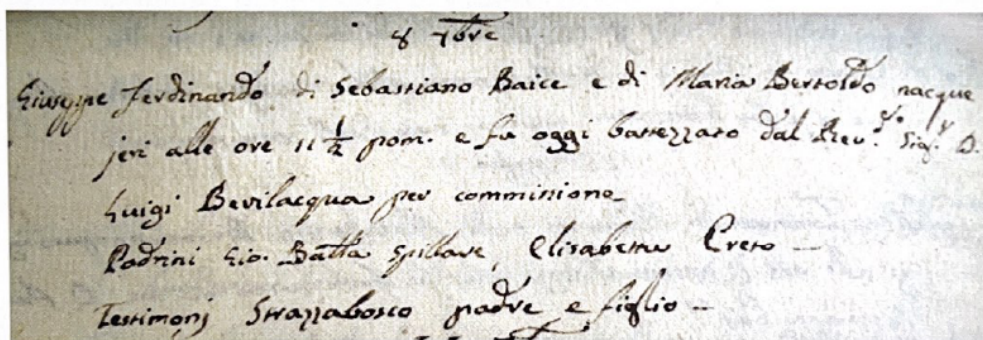 8 7bre
Giuseppe Ferdinando di Sebastiano Baice e di Maria Bertoldo nacque
jeri alle ore 11 ½ pom. e fu oggi battezzato dal Rev.do Sig.r D.
Luigi Bevilacqua per commissione
Padrini Gio. Batta Spillare, Elisabetta Creto –
Testimonj Strazzabosco padre e figlio –